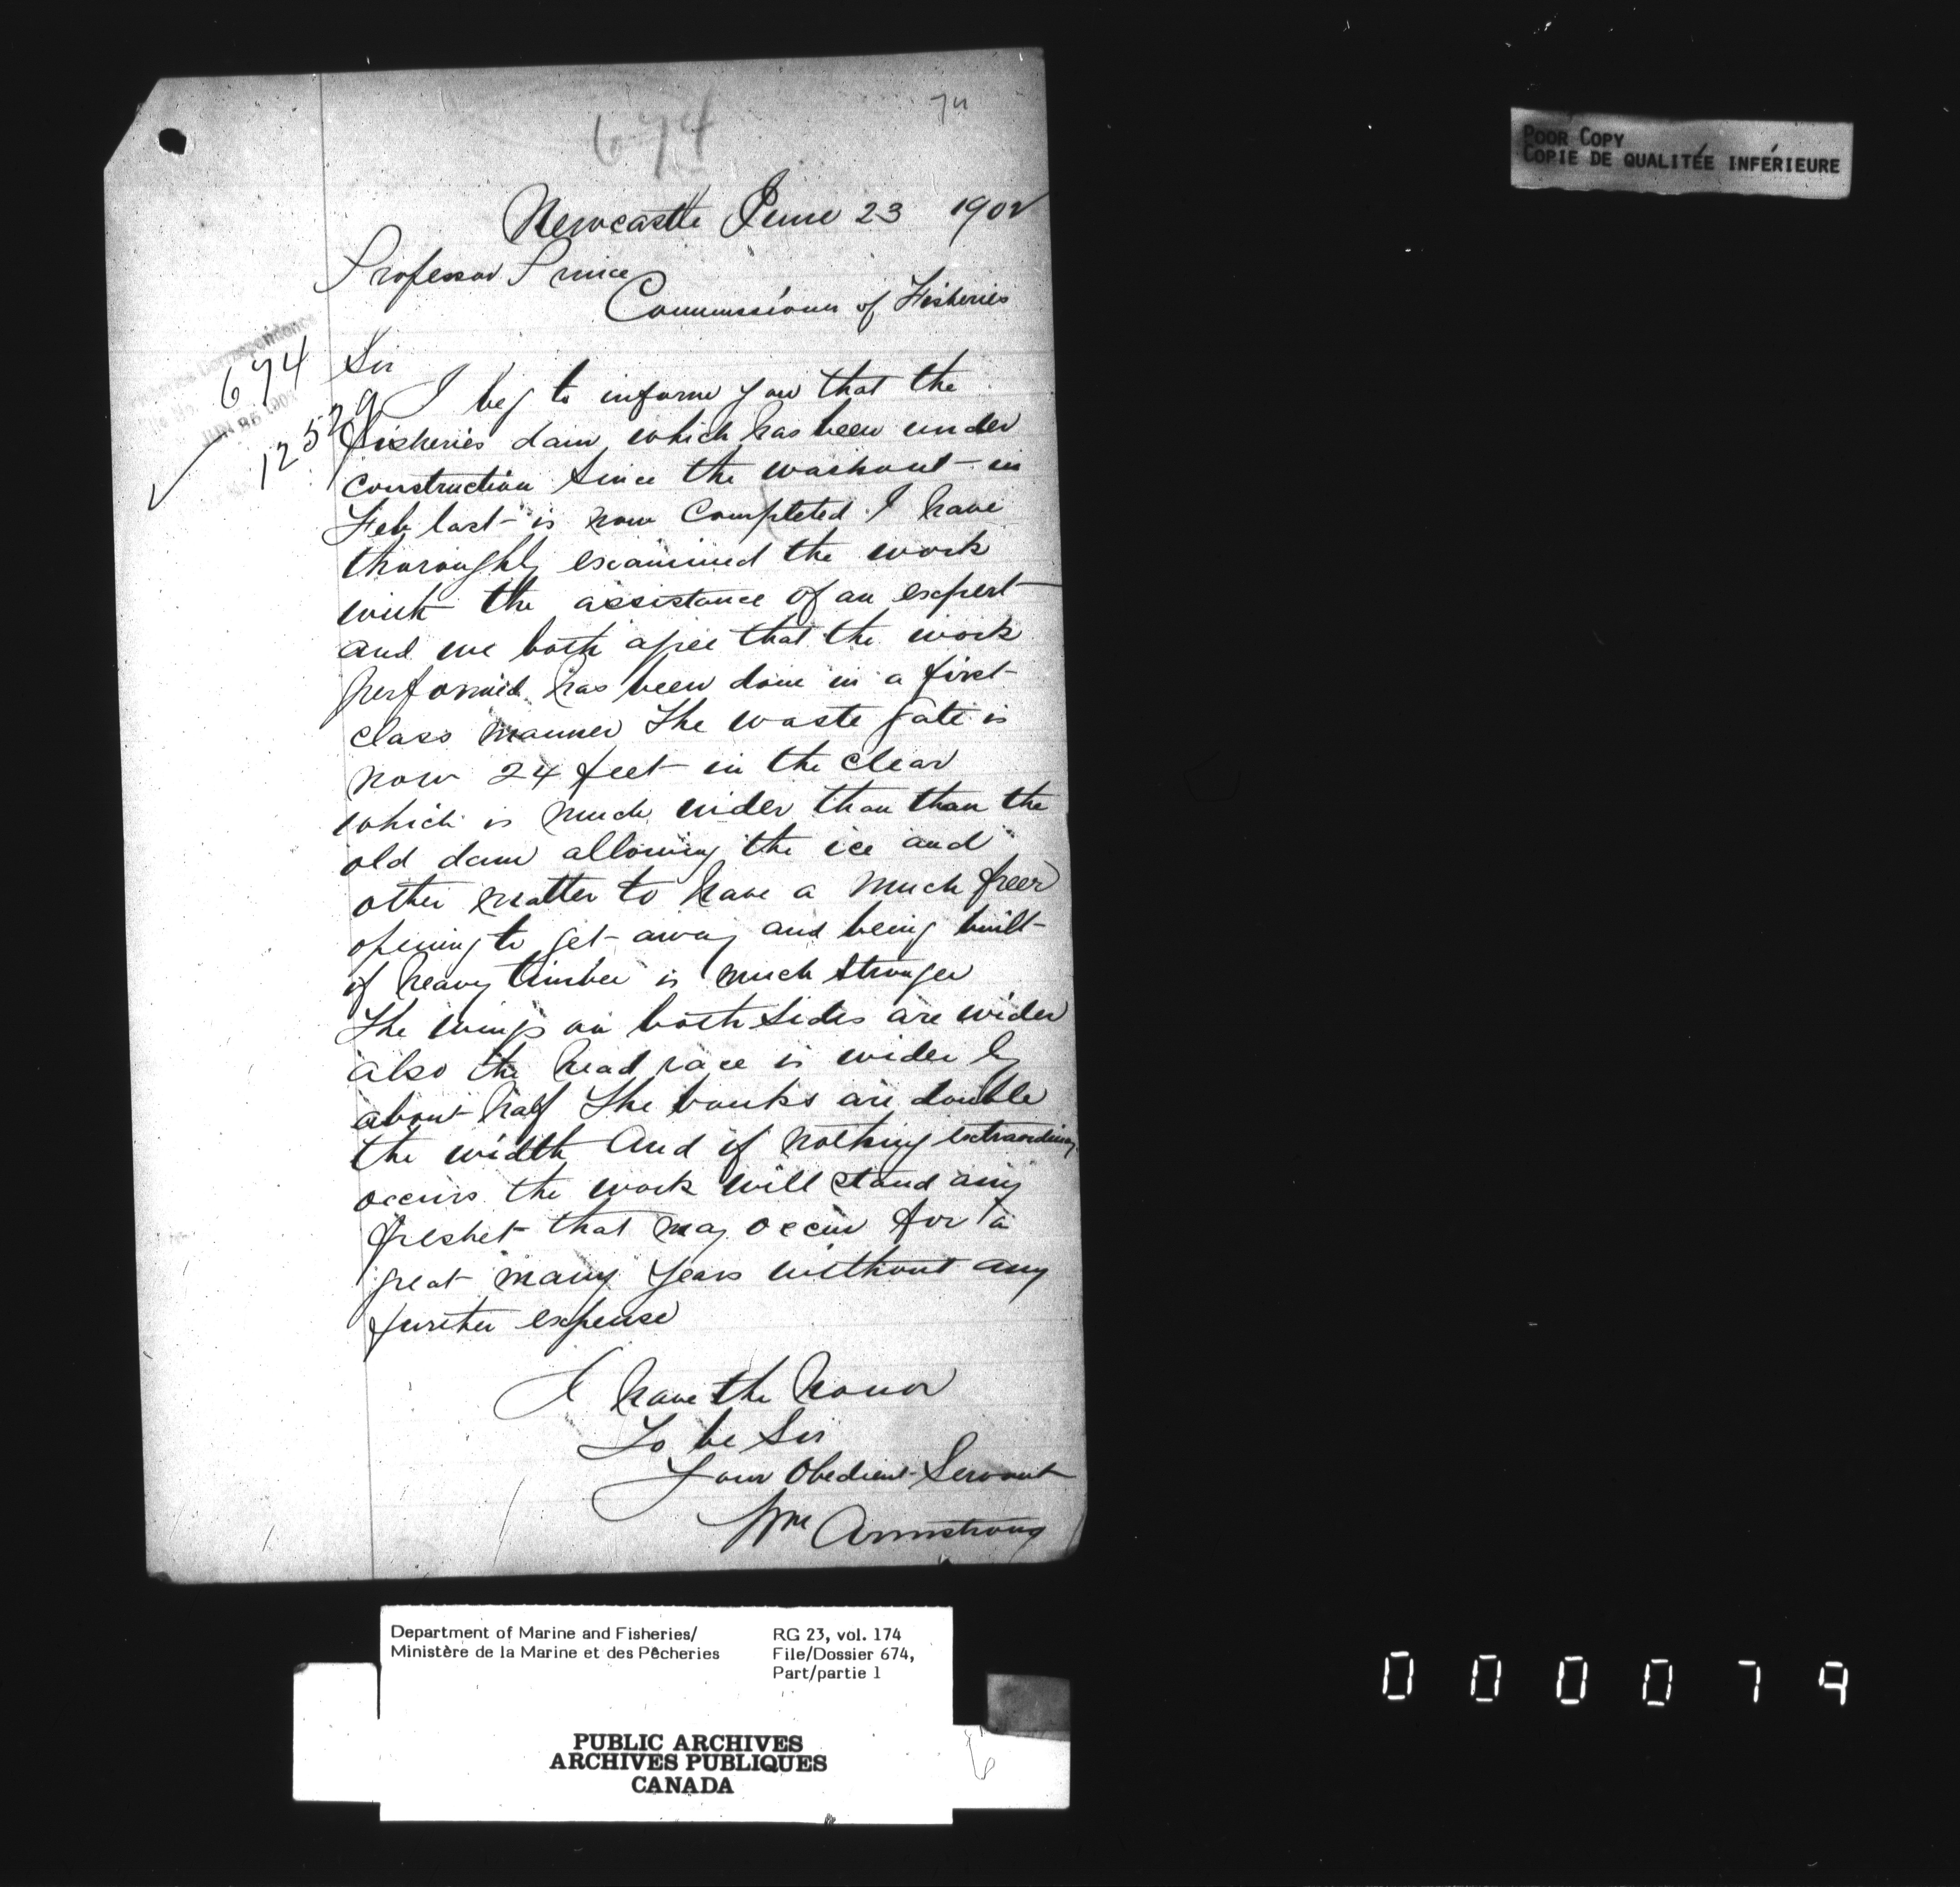 674
74
POOR COPY
COPIE DE QUALITÉE INFÉRIEURE
Newcastle June 23 1902
Professor Prince
Commissioner of Fisheries
Fisheries Correspondence
674
JUN 25 190
12529
Sir
I beg to inform you that the
fisheries dam which has been under
construction since the washout in
Feb last is now completed I have
thoroughly examined the work
with the assistance of an expert
and we both agree that the work
performed has been done in a first
class manner The waste gate is
now 24 feet in the clear
which is much wider than than the
old dam allowing the ice and
other matter to have a much freer
opening to get away and being built
of heavy timber is much stronger
The wings on both sides are wider
also the head race is wider by
about half The banks are double
the width And if nothing extraordinary
occurs the work will stand any
freshet that may occur for a
great many years without any
further expense
I have the honor
To be Sir
Your Obedient Servant
Wm Armstrong
Department of Marine and Fisheries/
Ministère de la Marine et des Pêcheries
RG 23, vol. 174
File/Dossier 674,
Part/partie 1
PUBLIC ARCHIVES
ARCHIVES PUBLIQUES
CANADA
6
000079